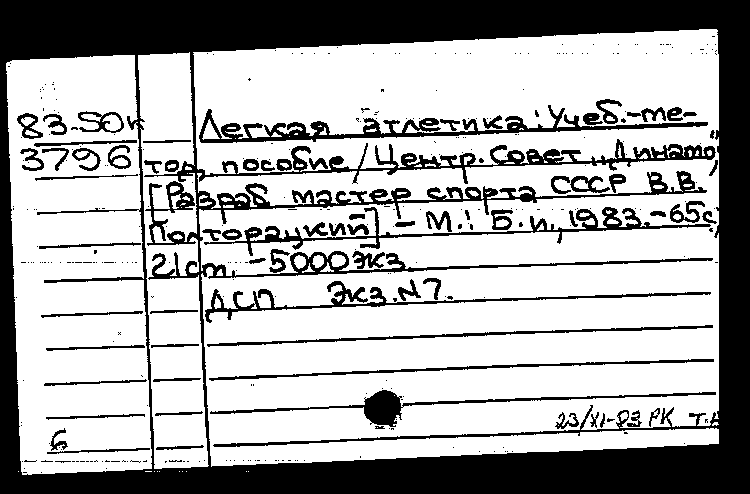 83-50к Легкая атлетика: Учеб.-ме-
3796 тод. пособие / Центр. Совет „Динамо",
[Разраб мастер спорта СССР В.В.
Полторацкий]. - М.: Б.и., 1983. - 65с,
21cm. - 5000экз.
ДСП. Экз.N7.
6 23/XI-83 РК